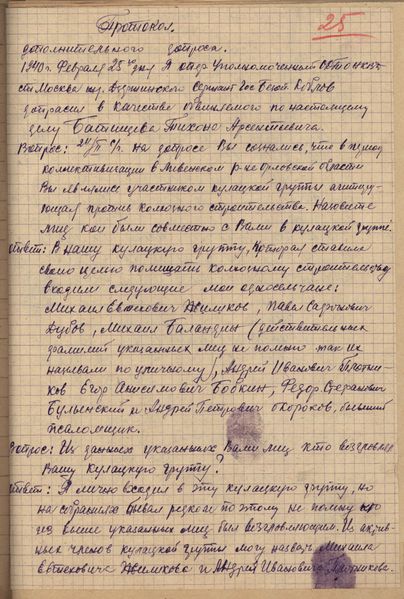 25
Протокол
дополнительного допроса.
1940 г. Февраля 25 го дня Я опер Уполномоченный ОДТО НКВД
ст Москва Сержант Гос Безоп.
допросил в качестве обвиняемого по настоящему
делу Батищева Тихона Арсентьевича.
Вопрос: 24/II с/г. на допросе Вы сознались, что в период
коллективизации в Ливенском р-не Орловской области
Вы являлись участником кулацкой группы агитиру-
ющая против колхозного строительства. Назовите
лиц кои были совместно с Вами в кулацкой группе.
Ответ: В нашу кулацкую группу, которая ставила
свою целью помешать колхозному строительству
входили следующие мои односельчане:
Михаил Евтехович Жиликов, Павел
Зубов, Михаил Баландин (действительных
фамилий указанных лиц не помню так их
называли по уличному), Андрей Иванович Плотни-
ков Егор Анисимович Бобкин, Федор Стефанович
Булынский и Андрей Петрович Скороков, бывший
псаломщик.
Вопрос: Из данных указанных Вами лиц кто возглавлял
Вашу кулацкую группу?
Ответ: Я лично входил в эту кулацкую группу, но
на собраниях бывал редко и поэтому не помню кто
из выше указанных лиц был возглавляющим. Из актив-
ных членов кулацкой группы могу назвать Михаила
Евтеховича Жиликова и Андрея Ивановича Плотникова.